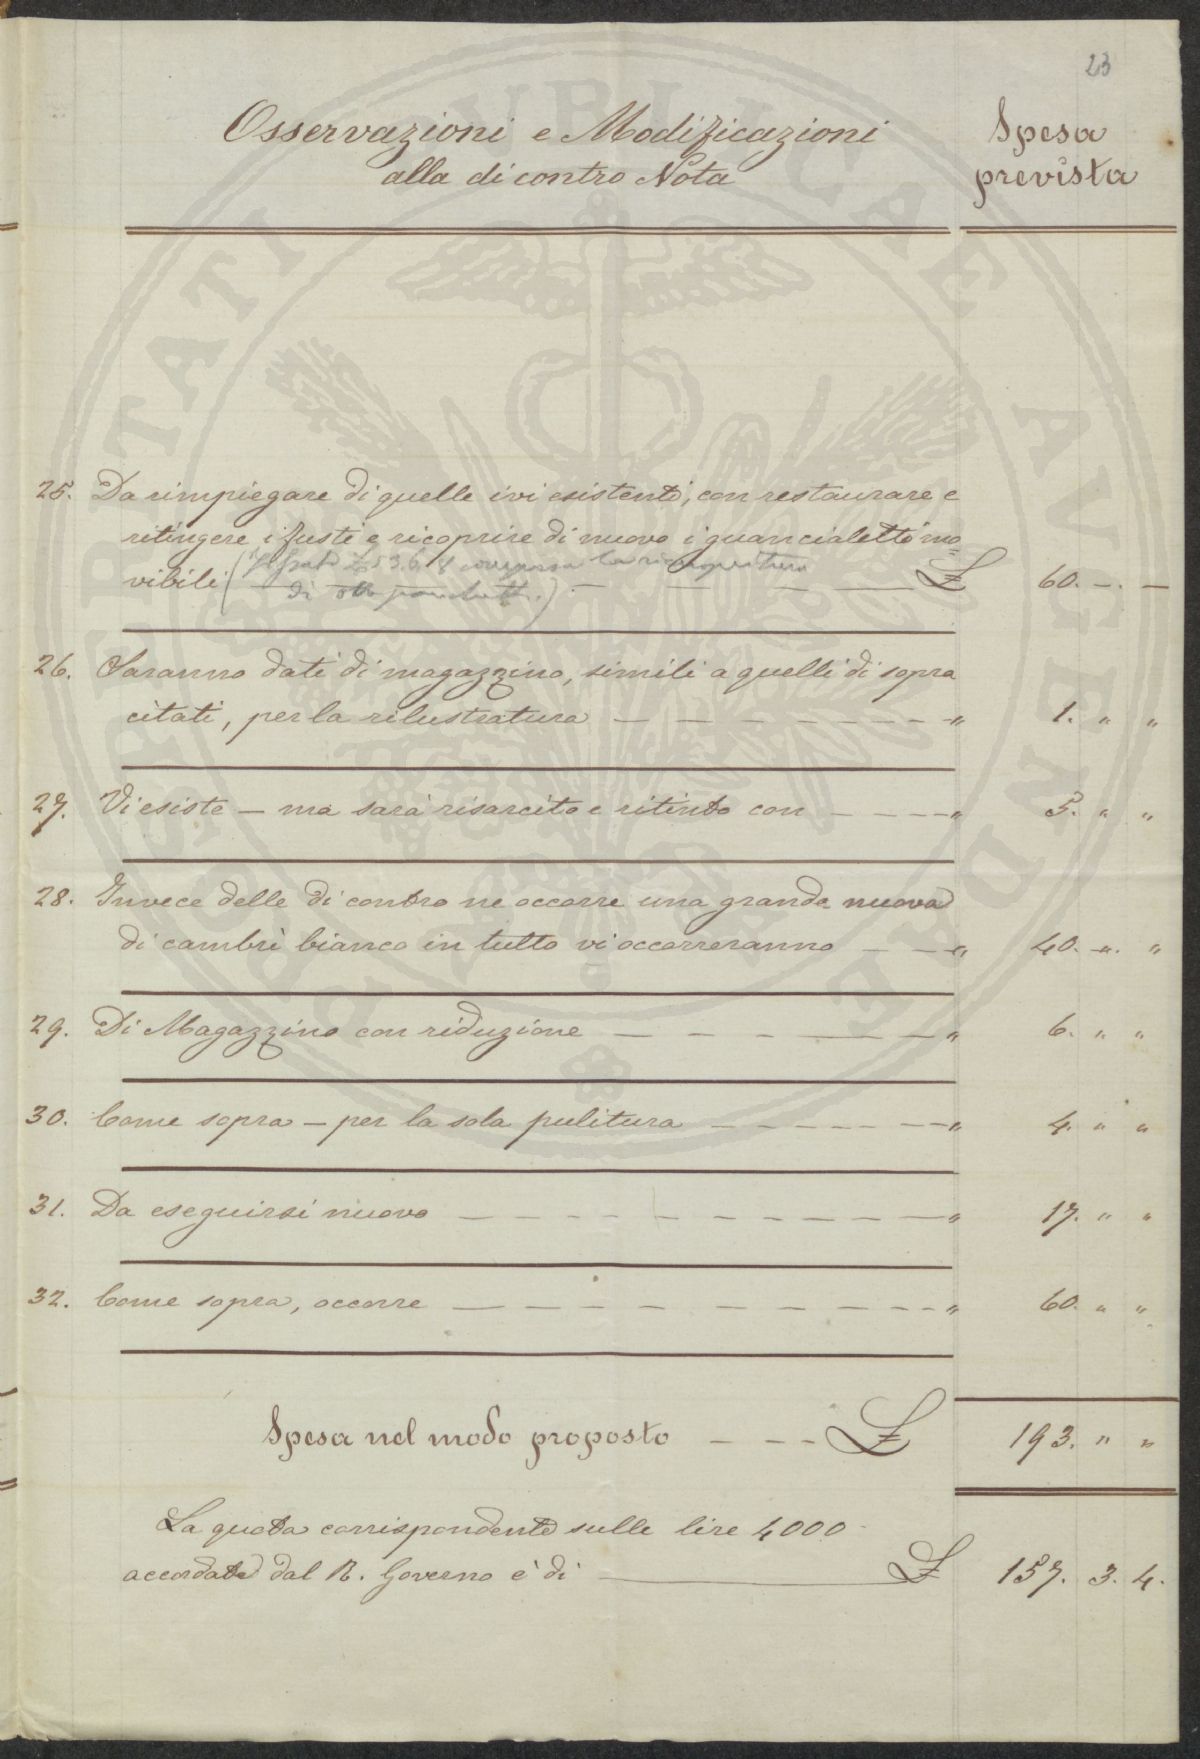 23
Osservazioni e Modificazioni
alla di contro Nota
Spesa
prevista
25. Da rimpiegare di quelle ivi esistenti, con restaurare e
ritingere i fusti e ricoprire di nuovo i guancialetti mo=
vibili ( £ 53.6.8 compresa la ricopritura £ 60. — . —
di )
26. Saranno dati di magazzino, simili a quelli di sopra
citati, per la rilustratura — — — — — — — — — " 1. " "
27. Vi esiste — ma sarà risarcito e ritinto con — — — — " 5. " "
28. Invece delle di contro ne occorre una grande nuova
di cambrì bianco in tutto vi occorreranno — — — " 40. " "
29. Di Magazzino con riduzione — — — — — — " 6. " "
30. Come sopra — per la sola pulitura — — — — — — — " 4. " "
31. Da eseguirsi nuovo — — — — — — — — — — — " 17. " "
32. Come sopra, occorre — — — — — — — — — — — " 60. " "
Spesa nel modo proposto — — — £ 193. " "
La quota corrispondente sulle lire 4000
accordate dal R. Governo è di ——— £ 157. 3. 4.
PUBLICAE AUGENDAE